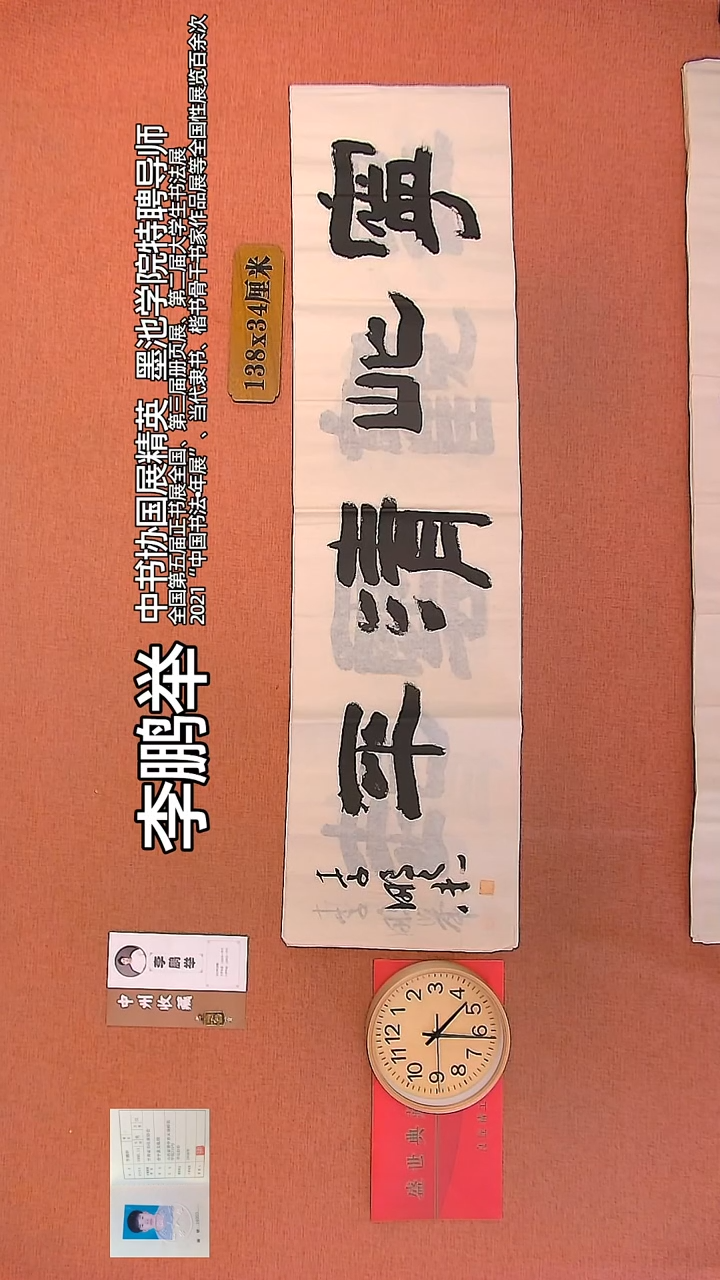 李鹏举
中书协国展精英 墨池学院特聘导师
全国第五届正书展全国、第三届册页展、第二届大学生书法展
2021“中国书法·年展”、当代隶书、楷书骨干书家作品展等全国性展览百余次
138x34厘米
寧此清平
李鹏举
中州收藏
12
1
2
3
4
5
6
7
8
9
10
11
盛世典